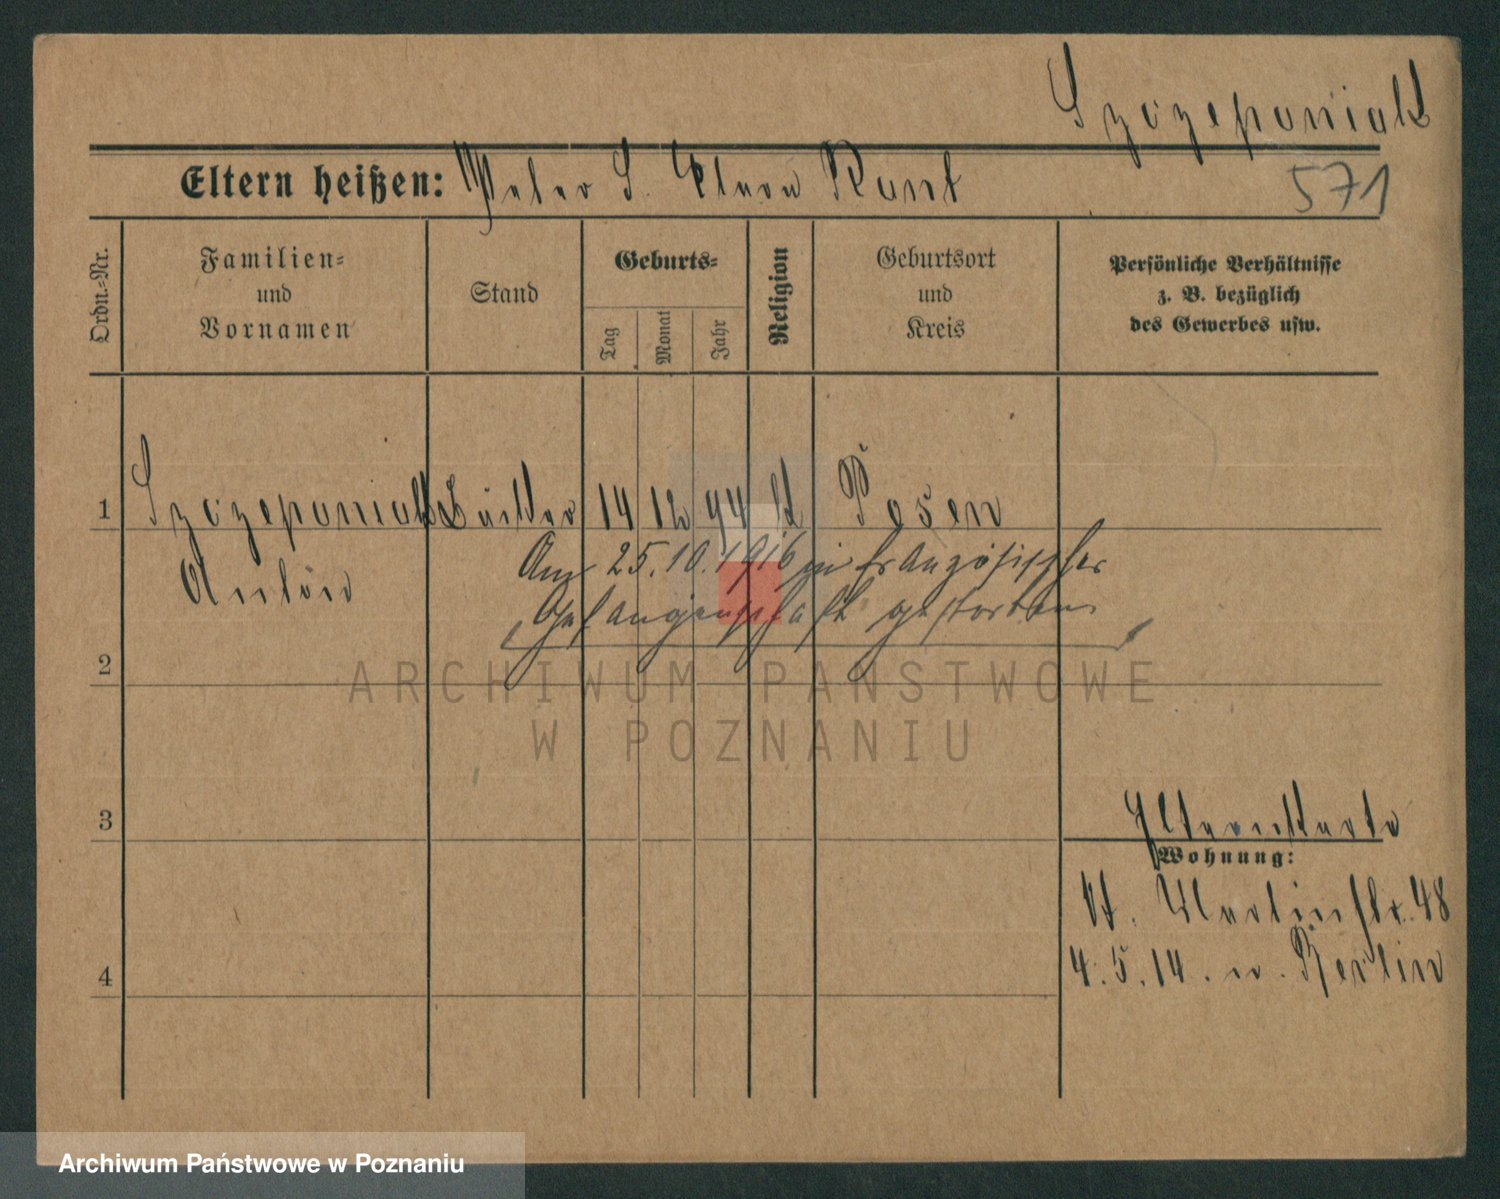 Szczepaniak
Eltern heißen: Peter S. Clara Kunt
571
Ordn.-Nr.
Familien-
und
Vornamen
Stand
Geburts-
Tag
Monat
Jahr
Religion
Geburtsort
und
Kreis
Persönliche Verhältnisse
z. B. bezüglich
des Gewerbes usw.
1 Szczepaniak 14 12 94 k Posen
Anton
Am 25.10.1916 in französischer
Gefangenschaft gestorben
2
ARCHIWUM PAŃSTWOWE
W POZNANIU
3
Elternkarte
Wohnung:
St. Martinstr. 48
4
4.5.14. n. Berlin
Archiwum Państwowe w Poznaniu